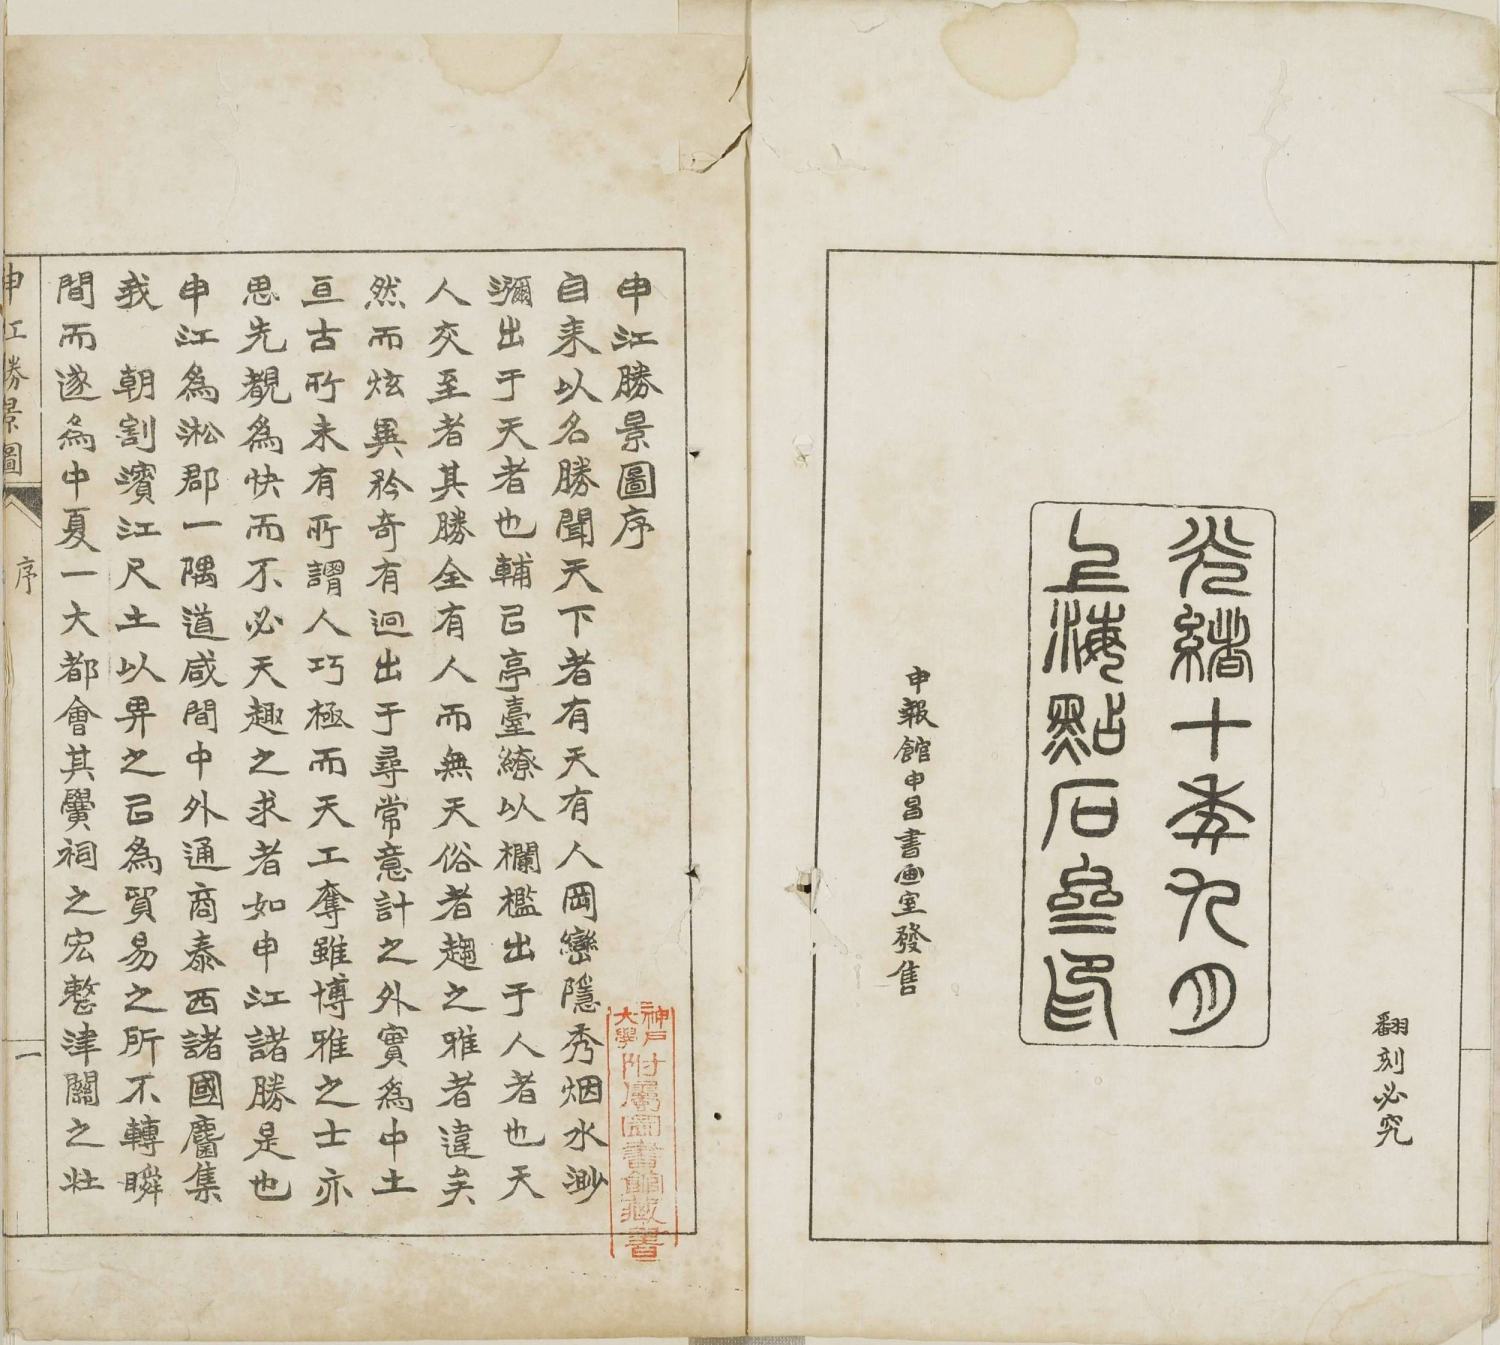 翻刻必究
光緒十年九月
上海點石齋印
申報館申昌書画室發售
申江勝景圖序
自来以名勝聞天下者有天有人岡巒隱秀烟水渺
瀰出于天者也輔㠯亭臺繚以欄檻出于人者也天
人交至者其勝全有人而無天俗者趨之雅者違矣
然而炫異矜奇有迥出于尋常意計之外實為中土
亘古所未有所謂人巧極而天工奪雖博雅之士亦
思先覩為快而不必天趣之求者如申江諸勝是也
申江為淞郡一隅道咸間中外通商泰西諸國麕集
我 朝割濱江尺土以畀之㠯為貿易之所不轉瞬
間而遂為中夏一大都會其黌祠之宏整津關之壯
申江勝景圖
序
一
神戶大學附屬圖書館藏書